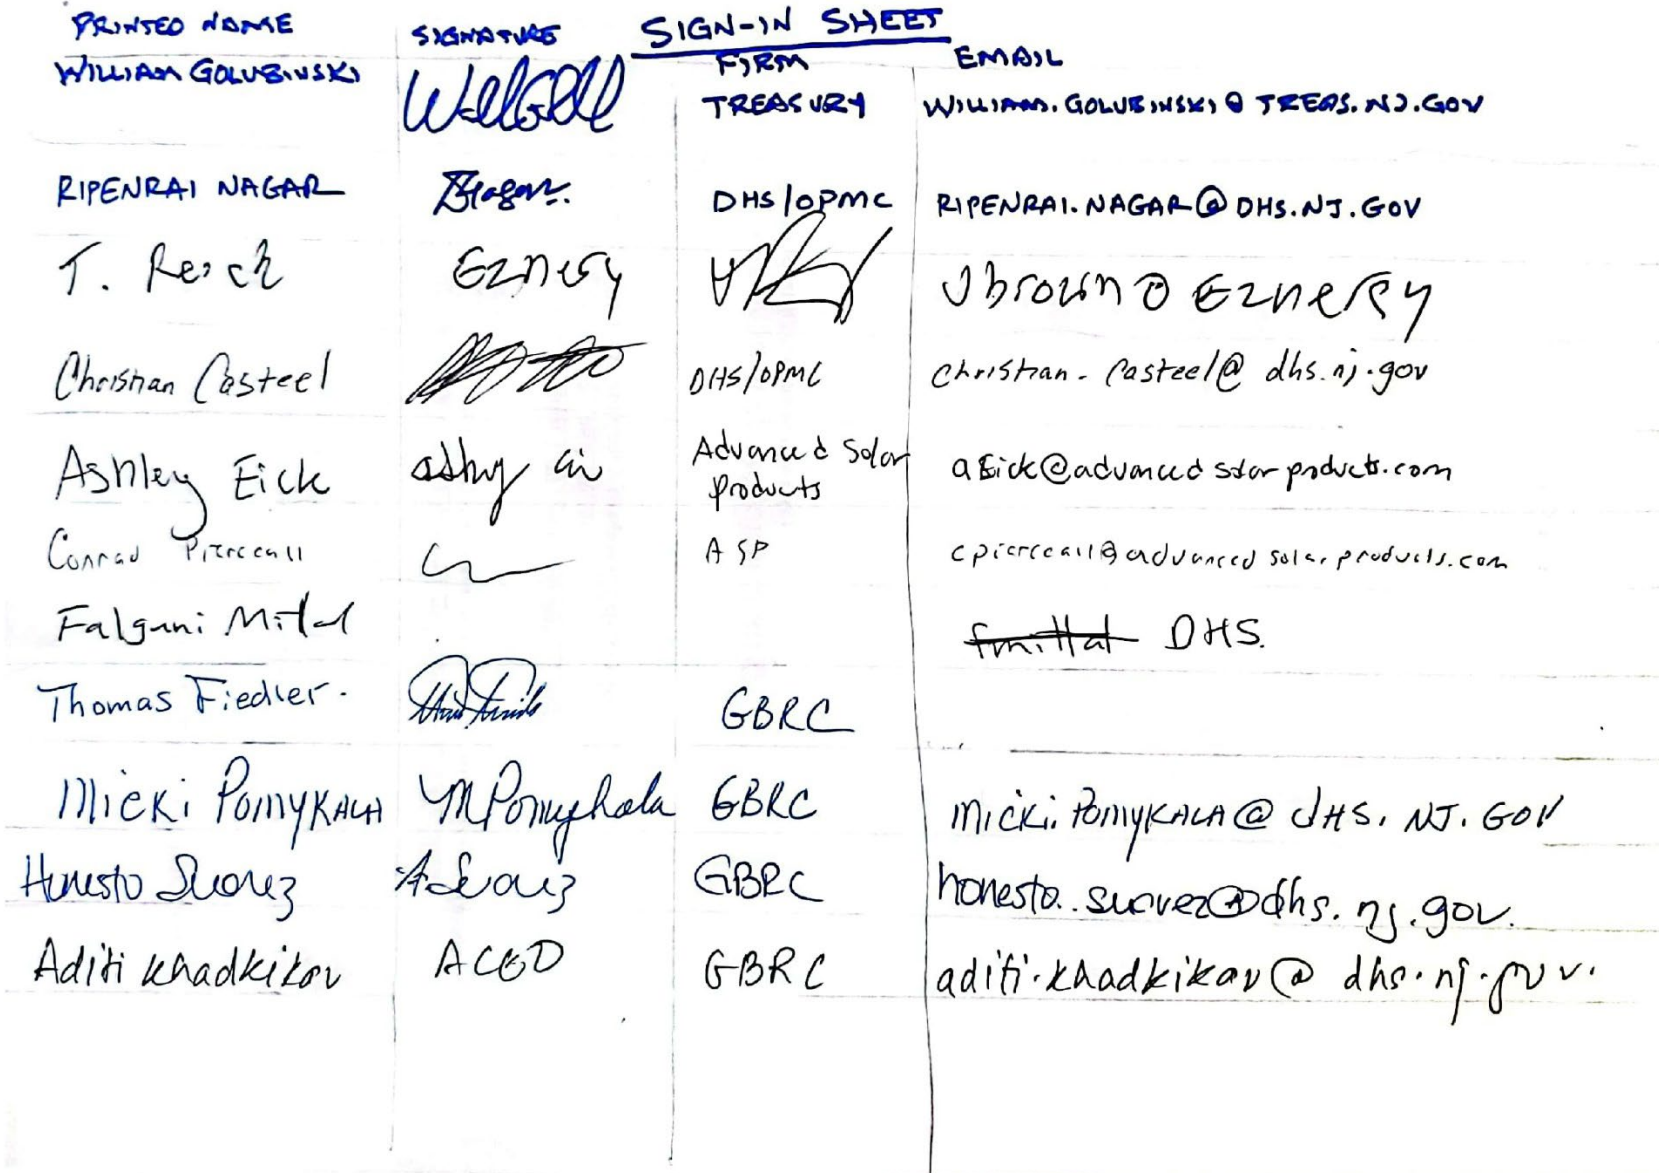 SIGN-IN SHEET
PRINTED NAME SIGNATURE FIRM EMAIL
WILLIAM GOLUBINSKI TREASURY WILLIAM.GOLUBINSKI@TREAS.NJ.GOV
RIPENRAI NAGAR DHS/OPMC RIPENRAI.NAGAR@DHS.NJ.GOV
T. Reich Eznergy Jbrown@Eznergy
Christian Casteel DHS/OPMC christian.casteel@dhs.nj.gov
Ashley Eick Advanced Solar
Products aEick@advancedsolarproducts.com
Conrad Pierceall ASP cpierceall@advancedsolarproducts.com
Falguni Mittal fmittal DHS.
Thomas Fiedler. GBRC
Micki PomyKALA MPomykala GBRC micki.PomyKALA@dHS.NJ.GOV
Honesto Suarez GBRC honesto.suarez@dhs.nj.gov.
Aditi Khadkikar GBRC aditi.khadkikar@dhs.nj.gov.